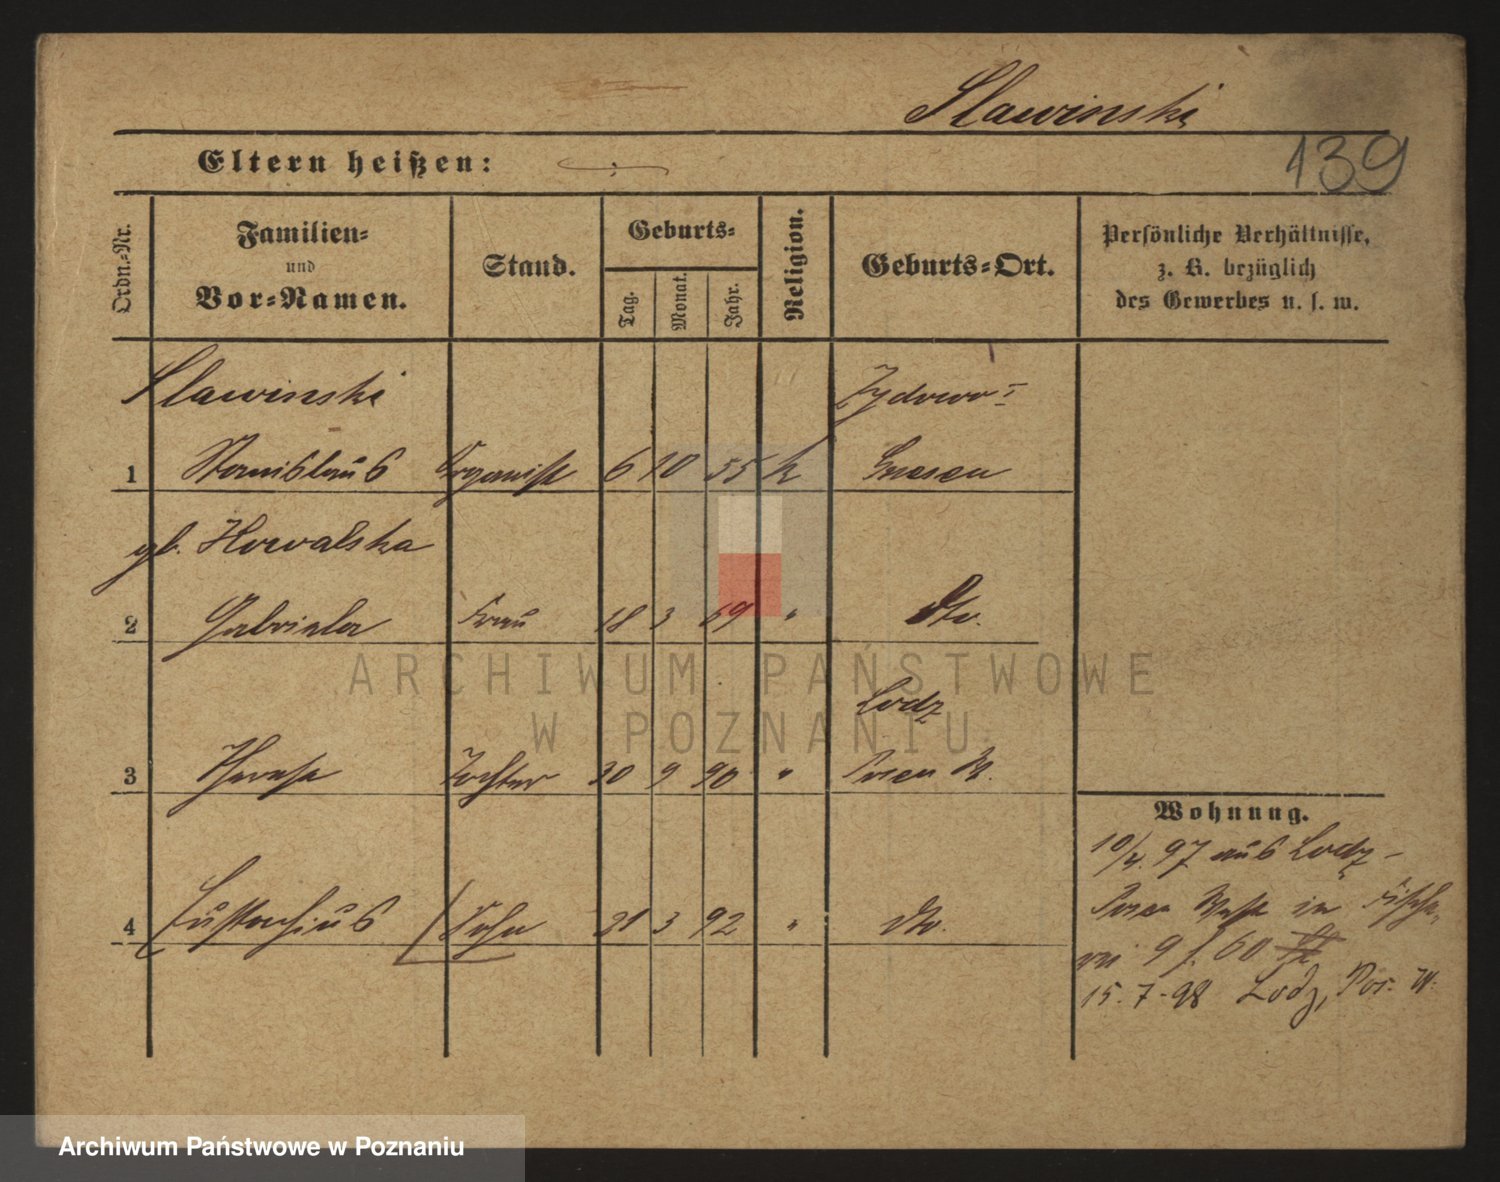 Slawinski
139
Eltern heißen:
Ordn.-Nr.
Familien-
und
Vor-Namen.
Stand.
Geburts-
Tag.
Monat.
Jahr.
Religion.
Geburts-Ort.
Persönliche Verhältnisse,
z. B. bezüglich
des Gewerbes u. s. w.
Slawinski
Zydowo
1 Stanislaus Organist 6 10 55 k Gnesen
gb. Kowalska
2 Gabriela Frau 18 3 69 " dto.
Lodz
3 Therese Tochter 30 9 90 " Posen W.
4 Eustachius Sohn 31 3 92 " dto.
Wohnung.
10/4. 97 aus Lodz
Posen West in Fische-
rei 9 f. 60
15.7-98 Lodz, Pos. W.
ARCHIWUM PAŃSTWOWE
W POZNANIU
Archiwum Państwowe w Poznaniu